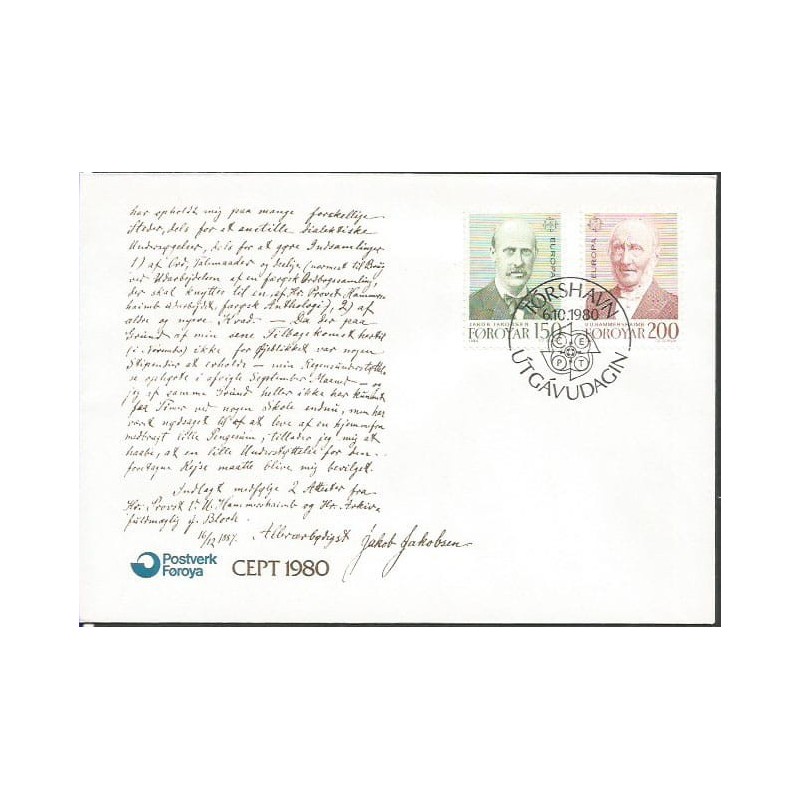 har opholdt mig paa mange forskellige
Steder, dels for at anstille dialektiske
Undersøgelser, dels for at gøre Indsamlinger
1) af Ord, Talemaader og deslige (nærmest til Brug
ved Udarbejdelsen af en færøsk Ordbogssamling,
der skal knyttes til en af Hr. Provst Hammers-
haimb udarbejdet færøsk Anthologi), 2) af
ældre og nyere Kvad. — Da der paa
Grund af min sene Tilbagekomst hertil
(i Novembr) ikke for Øjeblikket var nogen
Stipendier at erholde — min Regensunderstøttelse
ophørte i afvigte September Maaned — og
jeg af samme Grund heller ikke har kunnet
faa Timer ved nogen Skole endnu, men har
været nødsaget til at leve af en hjemmefra
medbragt lille Pengesum, tillader jeg mig at
haabe, at en lille Understøttelse for den
foretagne Rejse maatte blive mig bevilget.
Indlagt medfølge 2 Attester fra
Hr. Provst V. U. Hammershaimb og Hr. Arkiv-
fuldmægtig J. Bloch.
16/12 1887. Allerærbødigst Jakob Jakobsen
Postverk
Føroya
CEPT 1980
EUROPA
JAKOB JAKOBSEN
FØROYAR 150
EUROPA
V.U. HAMMERSHAIMB
FØROYAR 200
TÓRSHAVN
6.10.1980
CEPT
ÚTGÁVUDAGIN